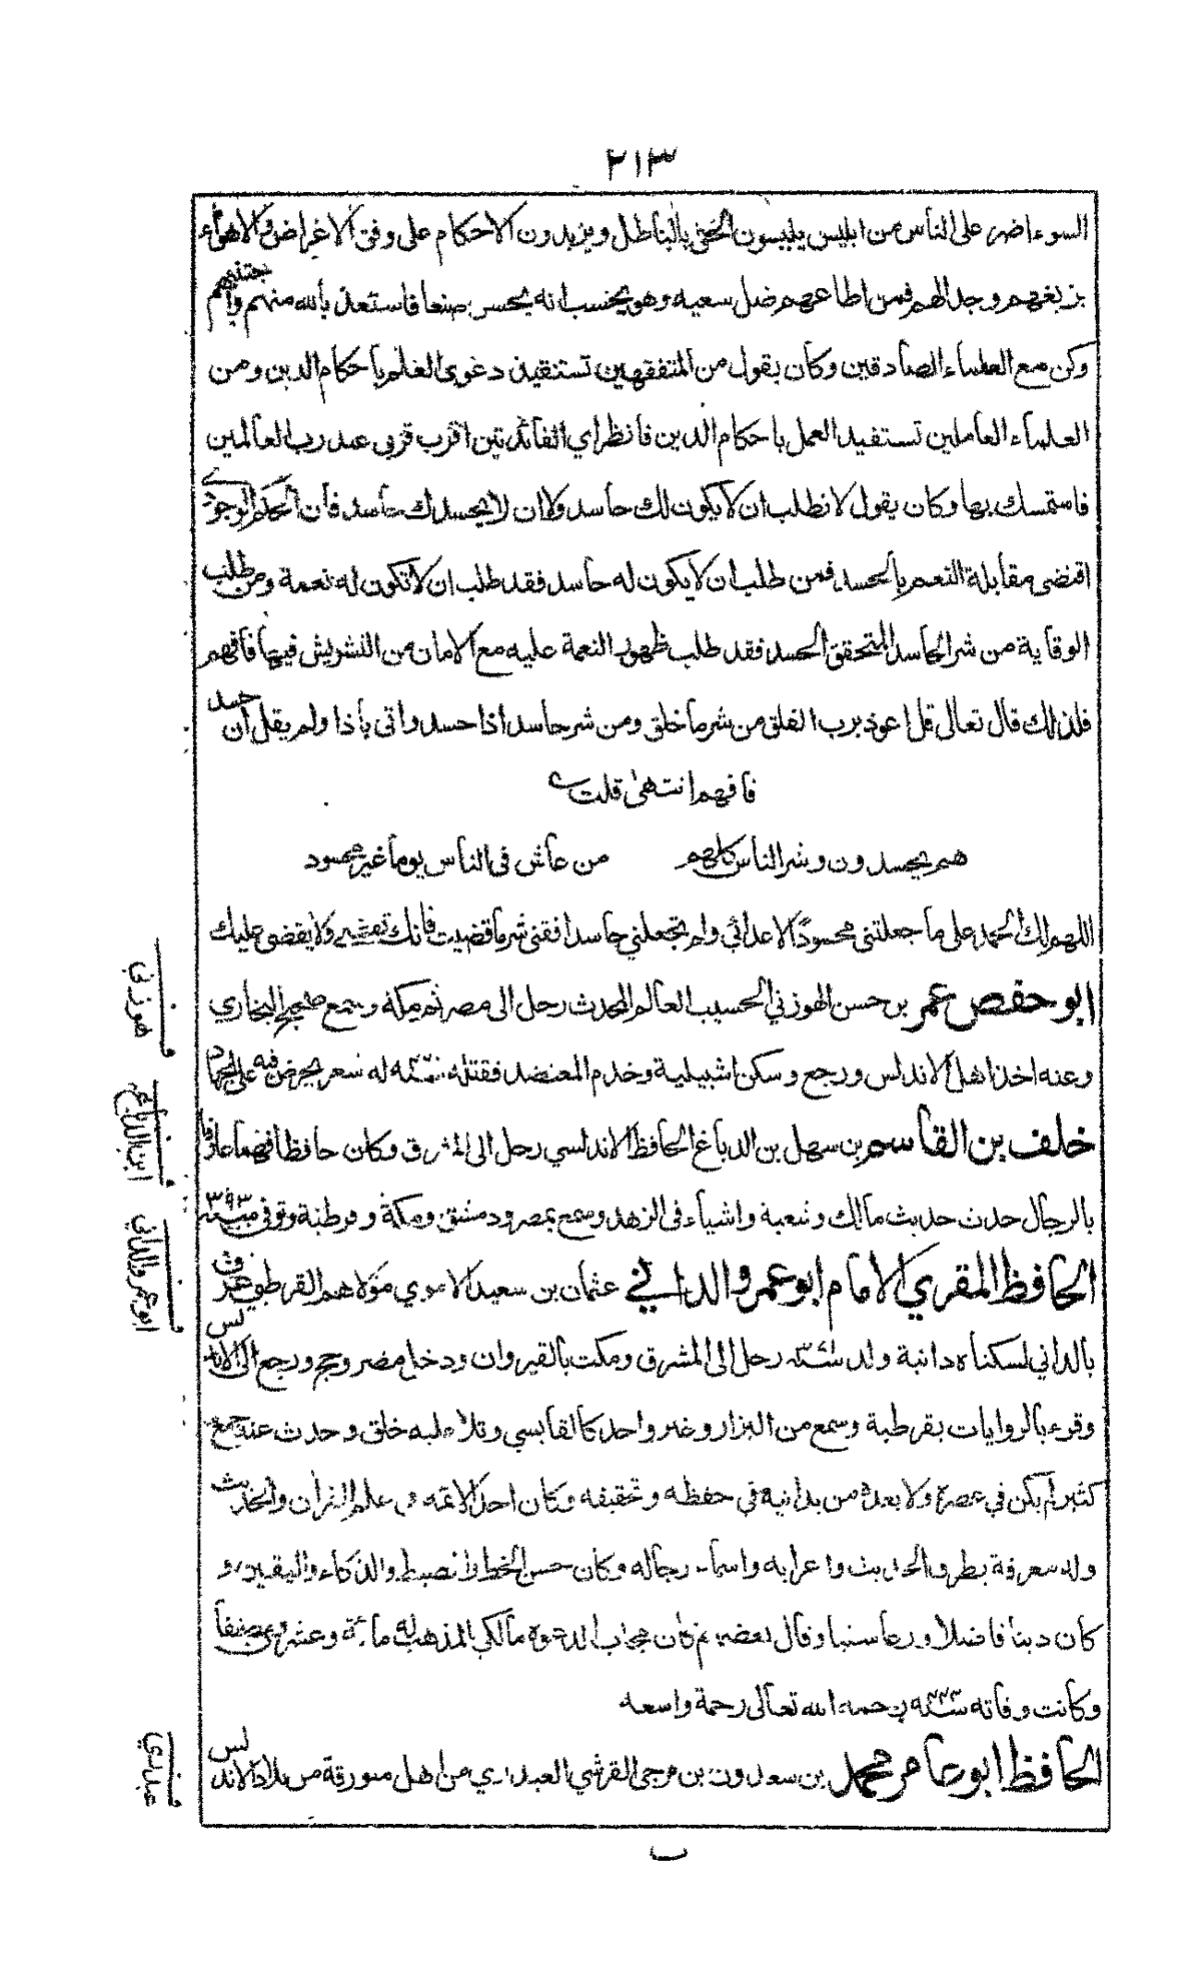 ٢١٣
السوء اضر على الناس من ابليس يلبسون الحق بالباطل ويزيدون الاحكام على وفق الاغراض والاهواء
بزيغهم وجدالهم فمن اطاعهم ضل سعيه وهو يحسب انه يحسن صنعا فاستعذ بالله منهم واجتنبهم
وكن مع العلماء الصادقين وكان يقول من المتفقهين تستفيد دعوى العلم باحكام الدين ومن
العلماء العاملين تستفيد العمل باحكام الدين فانظر اي الفائدتين اقرب قربى عند رب العالمين
فاستمسك بها وكان يقول لا تطلب ان لا يكون لك حاسد ولا ان لا يحسدك حاسد فان الحكم الوجودي
اقتضى مقابلة النعم بالحسد فمن طلب ان لا يكون له حاسد فقد طلب ان لا تكون له نعمة ومن طلب
الوقاية من شر الحاسد المتحقق الحسد فقد طلب ظهور النعمة عليه مع الامان من التشويش فيها فافهم
فلذلك قال تعالى قل اعوذ برب الفلق من شر ما خلق ومن شر حاسد اذا حسد واتى باذا ولم يقل ان حسد
فافهم انتهى قلت
هم يحسدون وشر الناس كلهم من عاش في الناس يوما غير محسود
اللهم لك الحمد على ما جعلتني محسودا لاعدائي ولم تجعلني حاسدا فقني شر ما قضيت فانك تقضي ولا يقضى عليك
ابو حفص عمر بن حسن الهوزني الحسيب العالم المحدث رحل الى مصر ثم مكة وسمع صحيح البخاري
وعنه اخذ اهل الاندلس ورجع وسكن اشبيلية وخدم المعتضد فقتله له شعر يحرض فيه على الجهاد
خلف بن القاسم بن سهل بن الدباغ الحافظ الاندلسي رحل الى المشرق وكان حافظا فهما عارفا
بالرجال حدث حديث مالك وشعبة واشياء في الزهد وسمع بمصر ودمشق ومكة وقرطبة وتوفي سنة ٣٩٣
الحافظ المقري الامام ابو عمرو الداني عثمان بن سعيد الاموي مولاهم القرطبي عرف
بالداني لسكناه دانية ولد رحل الى المشرق ومكث بالقيروان ودخل مصر وحج ورجع الى الاندلس
وقرء بالروايات بقرطبة وسمع من البزار وغير واحد كالقابسي وتلا عليه خلق وحدث عنه جمع
كثير لم يكن في عصره ولا بعده من يدانيه في حفظه وتحقيقه وكان احد الائمة في علم القران والحديث
وله معرفة بطرق الحديث واعرابه واسماء رجاله وكان حسن الخط والضبط والذكاء واليقين و
كان دينا فاضلا ورعا سنيا وقال بعضهم كان مجاب الدعوة مالكي المذهب له مائة وعشرون مصنفا
وكانت وفاته رحمه الله تعالى رحمة واسعه
الحافظ ابو عامر محمد بن سعدون بن مرجى القرشي العبدري من اهل ميورقة من بلاد الاندلس
هوزني
ابن الدباغ
ابو عمرو الداني
عبدري